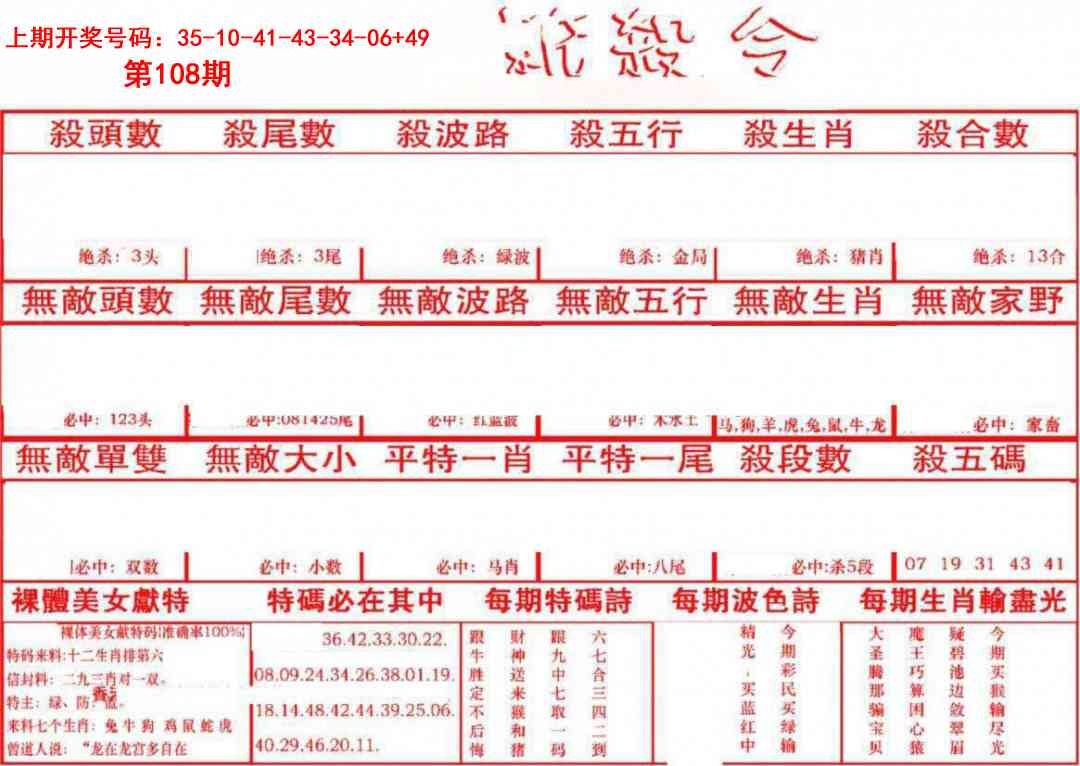 上期开奖号码：35-10-41-43-34-06+49
第108期
殺頭數 殺尾數 殺波路 殺五行 殺生肖 殺合數
绝杀：3头 绝杀：3尾 绝杀：绿波 绝杀：金局 绝杀：猪肖 绝杀：13合
無敵頭數 無敵尾數 無敵波路 無敵五行 無敵生肖 無敵家野
必中：123头 必中:081425尾 必中：红蓝波 必中：木水土 马,狗,羊,虎,兔,鼠,牛,龙 必中：家畜
無敵單雙 無敵大小 平特一肖 平特一尾 殺段數 殺五碼
必中：双数 必中：小数 必中：马肖 必中:八尾 必中:杀5段 07 19 31 43 41
裸體美女獻特 特碼必在其中 每期特碼詩 每期波色詩 每期生肖輸盡光
裸体美女献特码!准确率100%!
特码来料:十二生肖排第六
信封料：二九三肖对一双。
特主：绿、防：蓝。
来料七个生肖：兔 牛 狗 鸡 鼠 蛇 虎
曾道人说：“龙在龙宫多自在
36.42.33.30.22.
08.09.24.34.26.38.01.19.
18.14.48.42.44.39.25.06.
40.29.46.20.11.
六七合三四二到
跟九中七取一码
财神送来猴和猪
跟牛胜定不后悔
今期彩民买绿输
精光，买蓝红中
今期买猴输尽光
疑碧池边敛翠眉
魔王巧算困心猿
大圣腾那骗宝贝